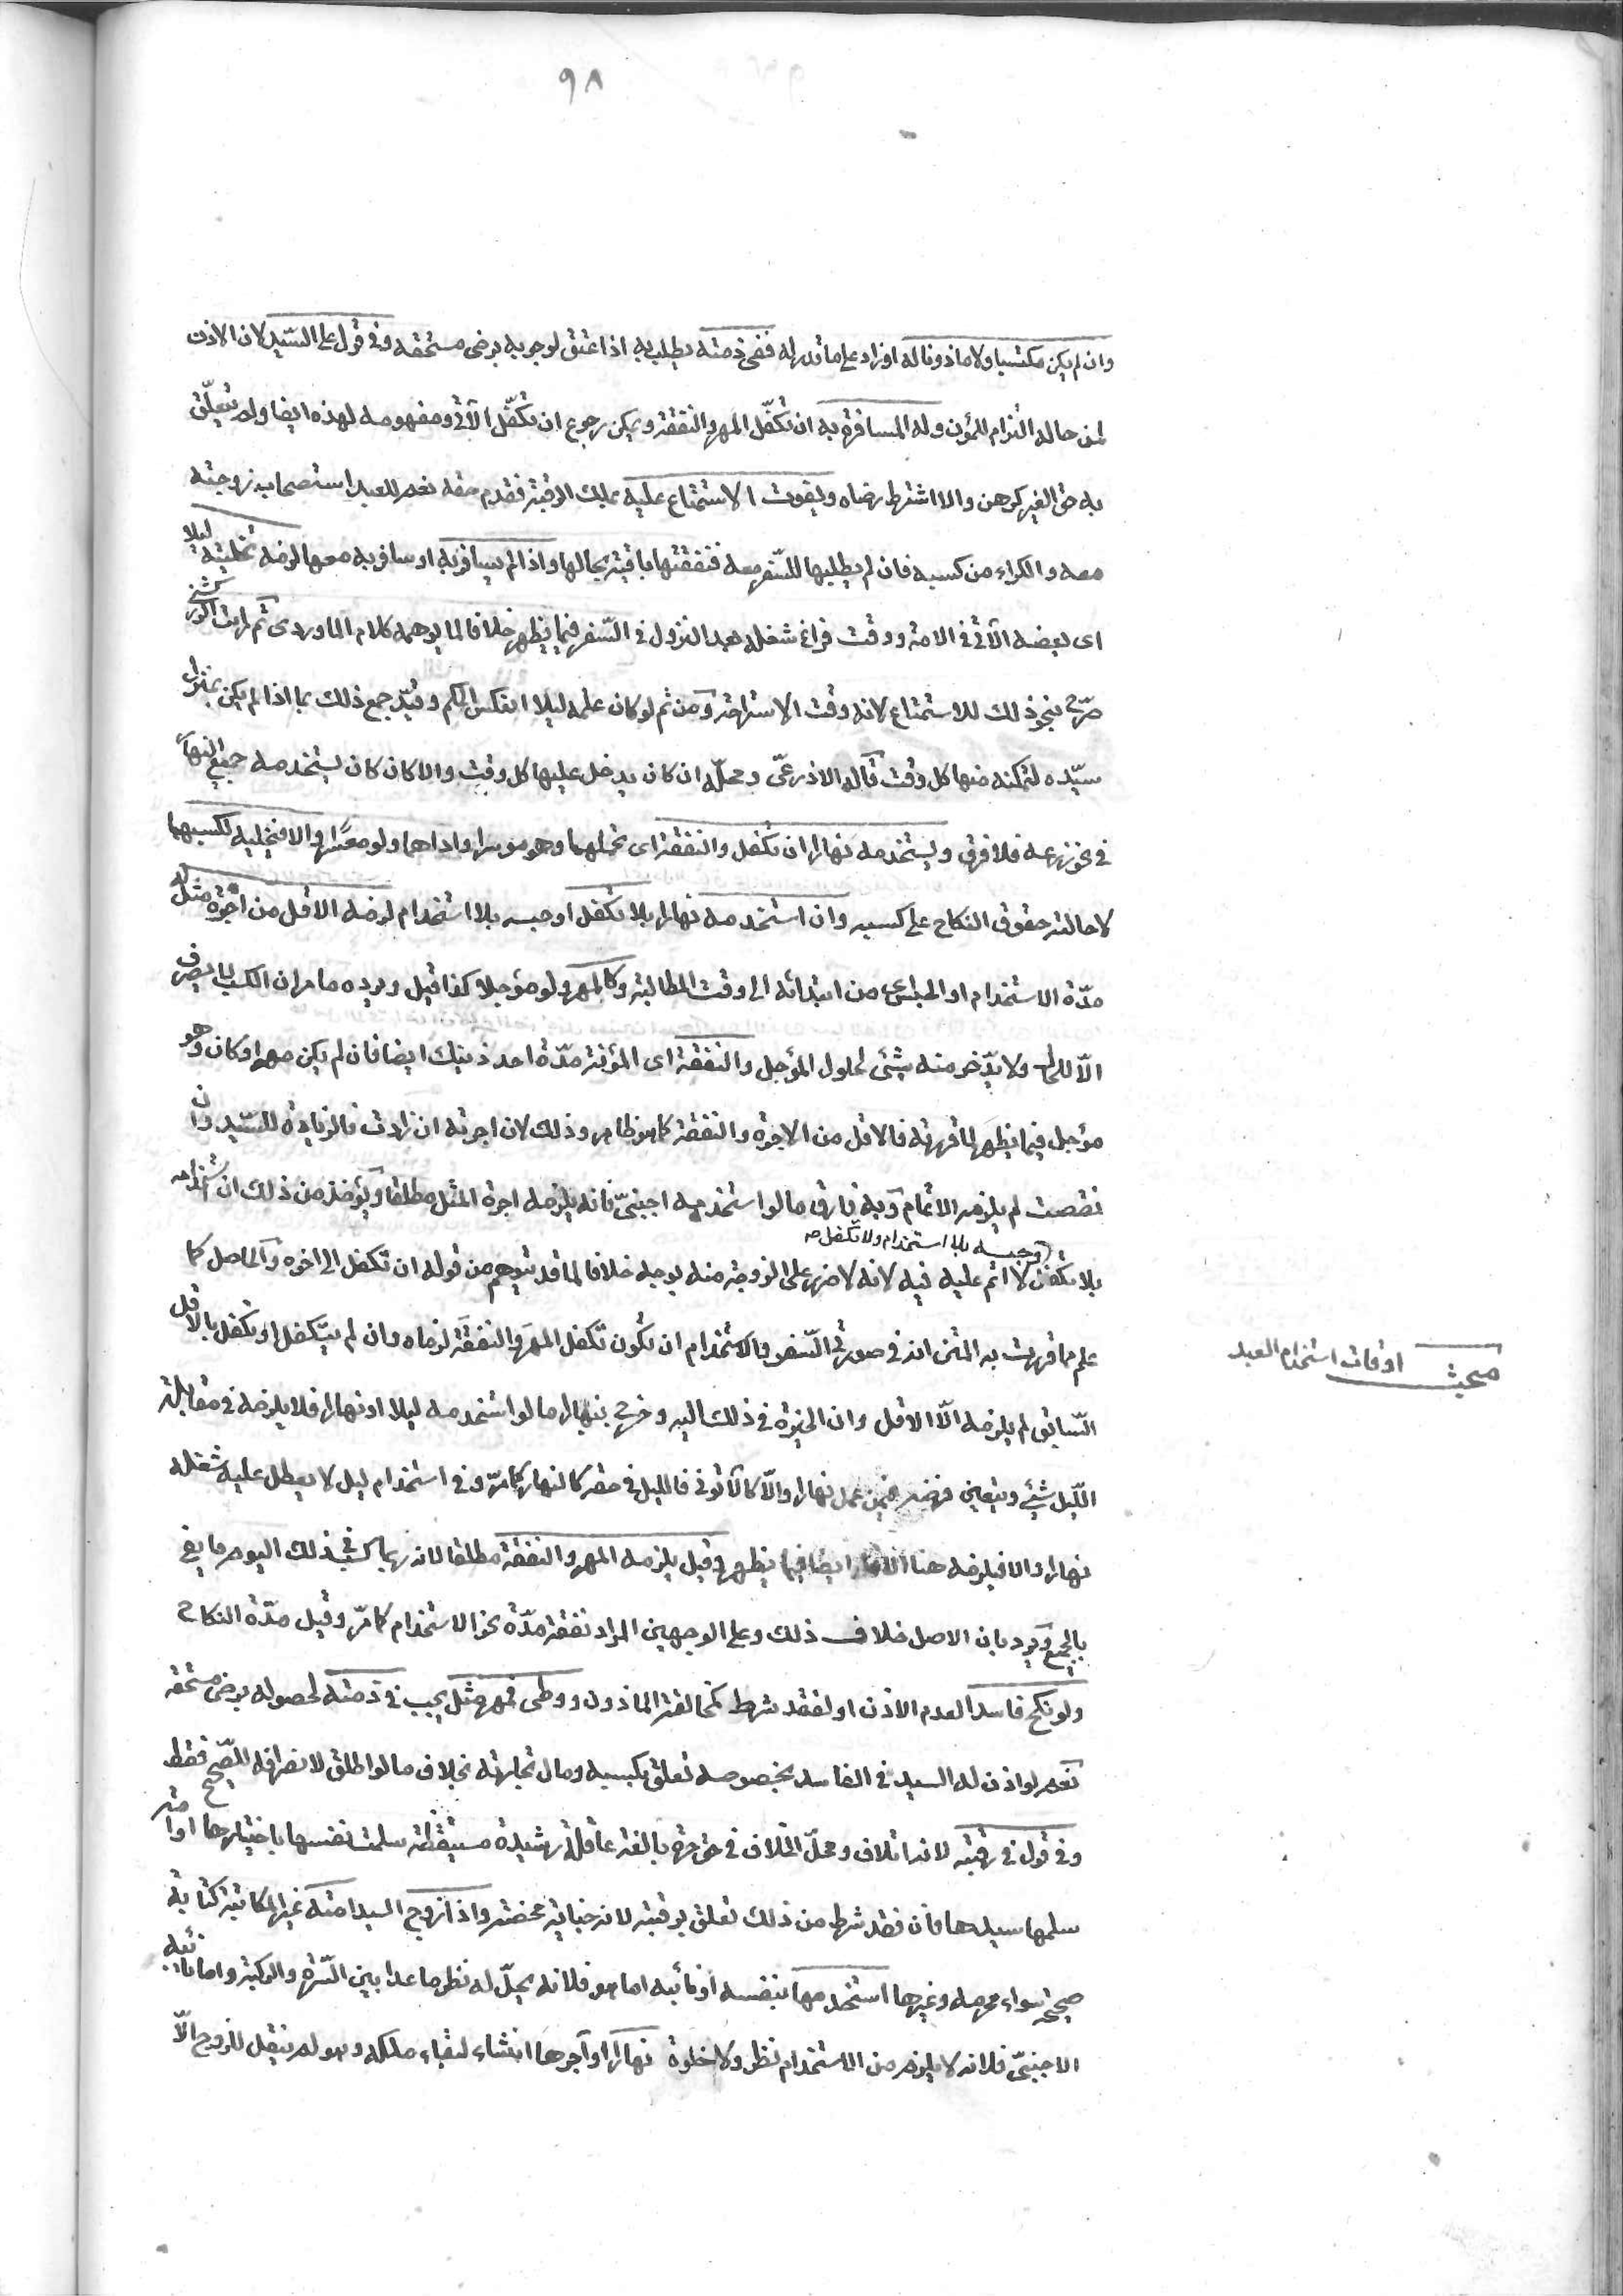 ٩٨
وان لم يكن مكتسبا ولا ماذونا له او زاد على ما قدر له ففى ذمته يطالب به اذا عتق لوجوبه برضى مستحقه وفى قول على السّيد لان الاذن
لمن حاله التزام للمؤن وله المسافرة به ان تكفّل المهر والنفقة ويمكن رجوع ان تكفّل الآتى ومفهومه لهذه ايضا ولم يتعلّق
به حق الغير كرهن والا اشترط رضاه ويفوت الاستمتاع عليه بملك الرقبة فقدم حقه نعم للعبد استصحاب زوجته
معه والكراء من كسبه فان لم يطلبها للسّفر معه فنفقتها باقية بحالها واذا لم يسافر به او سافر به معها لزمه تخليته ليلا
اى بعضه الآتى فى الامة ووقت فراغ شغله بعد النزول فى السّفر فيما يظهر خلافا لما يوهمه كلام الماوردى ثم رايت الزركشى
صرّح بنحو ذلك للاستمتاع لانه وقت الاستراحة ومن ثم لو كان عمله ليلا انعكس الحكم وقيّد جمع ذلك بما اذا لم يكن بمنزل
سيّده لتمكنه منها كل وقت قاله الاذرعىّ ومحلّه ان كان يدخل عليها كل وقت والا كان كان يستخدمه جميع النهار
فى نحو زرعه فلا فرق ويستخدمه نهارا ان تكفل والنفقة اى تحملهما وهو موسر او اداهما ولو معسرا والا فيخليه لكسبهما
لاحالته حقوق النكاح على كسبه وان استخدمه نهارا بلا تكفل او حبسه بلا استخدام لزمه الاقل من اجرة مثله
مدّة الاستخدام او الحبس اى من ابتدائه الى وقت المطالبة وكالمهر ولو مؤجلا كذا قيل ويرده ما مر ان الكسب لا يصرف
الّا للحال ولا يدّخر منه شئ لحلول المؤجل والنفقة اى المؤنة مدّة احد ذينك ايضا فان لم يكن مهر او كان وهو
مؤجل فيما يظهر لما قررته فالاقل من الاجرة والنفقة كما هو ظاهر وذلك لان اجرته ان زادت فالزيادة للسّيد وان
نقصت لم يلزمه الاتمام وبه فارق ما لو استخدمه اجنبىّ فانه يلزمه اجرة المثل مطلقا ويؤخذ من ذلك ان استخدامه
وحبسه بلا استخدام ولا تكفل صح
بلا تكفل لا اثم عليه فيه لانه لا ضرر على الزوجة منه بوجه خلافا لما قد يتوهم من قوله ان تكفل الى اخره والحاصل كما
علم مما قررت به المتن انه فى صورتى السّفر والاستخدام ان تكون تكفل المهر والنفقة لزماه وان لم يتكفل او تكفل بالاقل
السّابق لم يلزمه الّا الاقل وان الخيرة فى ذلك اليه وخرج بنهارا ما لو استخدمه ليلا او نهارا فلا يلزمه فى مقابلة
اللّيل شيئ ويتعين فرضه فيمن عمل نهارا والّا كالاتونى فالليل فى حقه كالنهار كما مرّ وفى استخدام ليل لا يعطل عليه شغله
نهارا والا فيلزمه هنا الاقل ايضا فيما يظهر وقيل يلزمه المهر والنفقة مطلقا لانه ربما كسب فى ذلك اليوم ما يفى
بالجميع ويرد بان الاصل خلاف ذلك وعلى الوجهين المراد نفقة مدّة نحو الاستخدام كما مرّ وقيل مدّة النكاح
ولو نكح فاسدا لعدم الاذن او لفقد شرط كمخالفة الماذون ووطى فمهر مثل يجب فى ذمته لحصوله برضى مستحقه
نعم لو اذن له السيد فى الفاسد بخصوصه تعلق بكسبه ومال تجارته بخلاف ما لو اطلق لانصرافه للصّحيح فقط
وفى قول فى رقبته لانه اتلاف ومحلّ الخلاف فى حق حرة بالغة عاقلة رشيدة مستيقظة سلمت نفسها باختيارها او امة
سلمها سيدها فان فقد شرط من ذلك تعلق برقبته لانه جناية محضة واذا زوج السيد امته غير المكاتبة كتابة
صحيحة سواء محرمه وغيرها استخدمها بنفسه او نائبه اما هو فلانه يحلّ له نظر ما عدا بين السّرة والركبة واما نائبه
الاجنبىّ فلانه لا يلزم من الاستخدام نظر ولا خلوة نهارا او آجرها ان شاء لبقاء ملكه وهو لم ينقل للزوج الّا
مبحث اوقات استخدام العبد